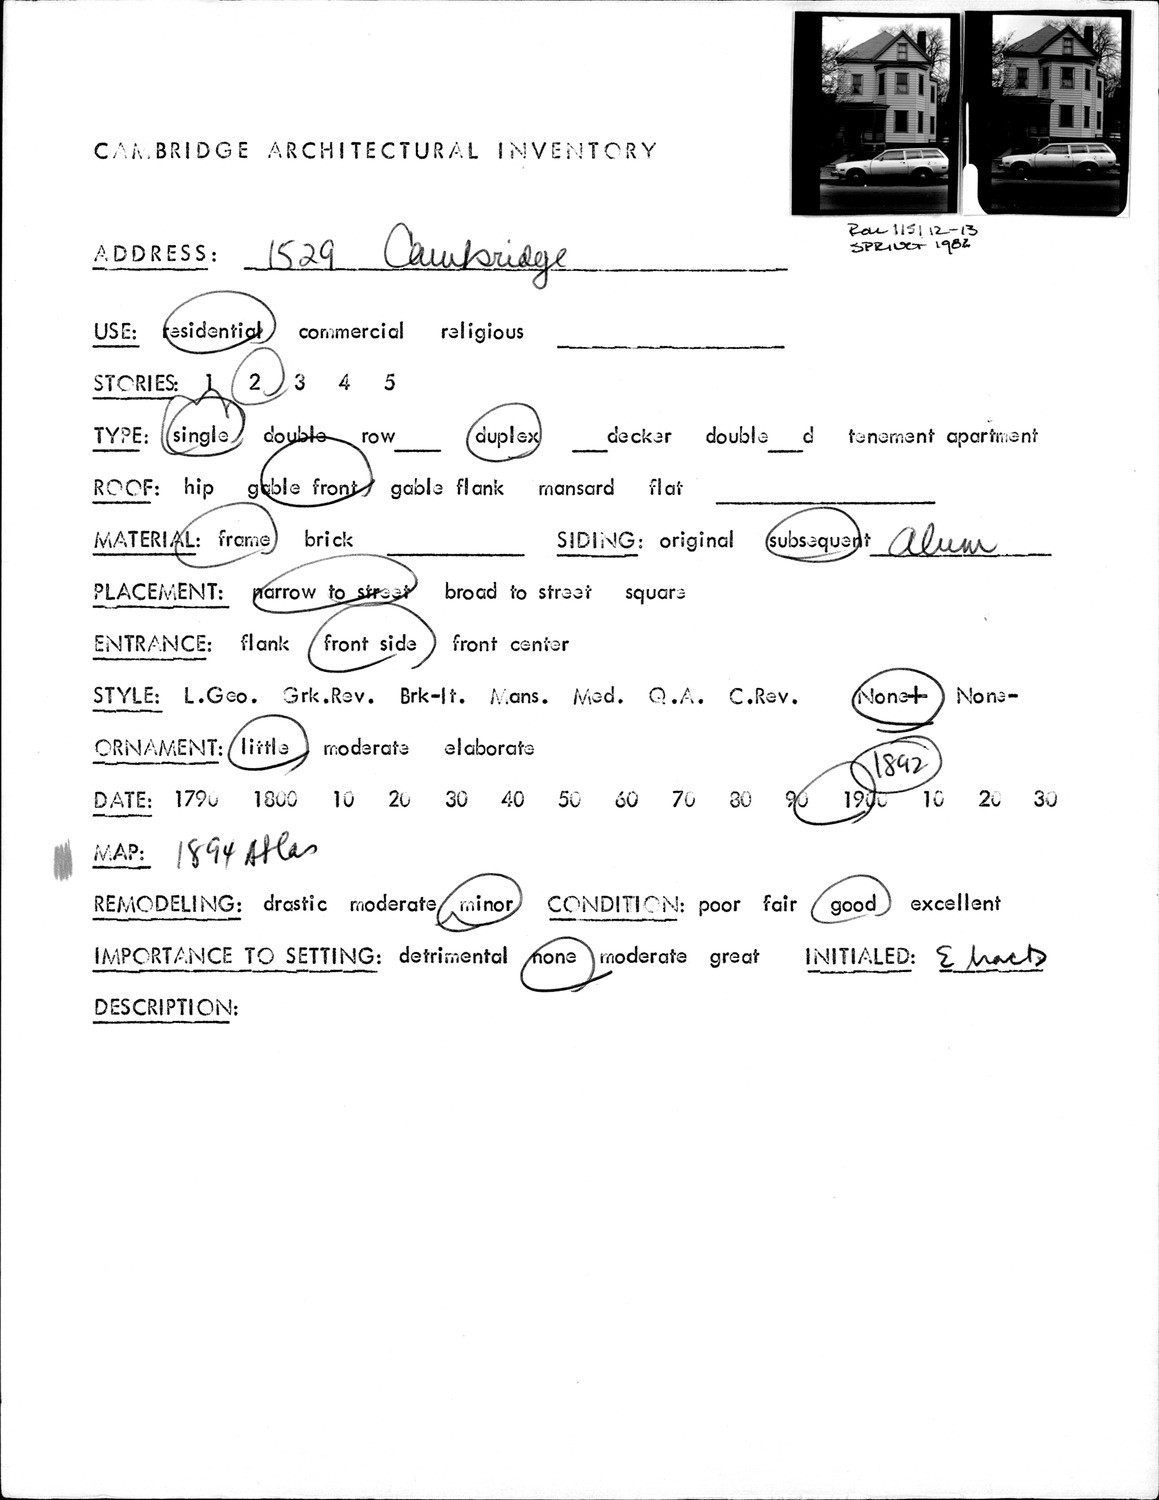 Roll 115/12-13
SPRING 1982
CAMBRIDGE ARCHITECTURAL INVENTORY
ADDRESS: 1529 Cambridge
USE: residential commercial religious
STORIES: 1 2 3 4 5
TYPE: single double row___ duplex ___decker double___d tenement apartment
ROOF: hip gable front gable flank mansard flat
MATERIAL: frame brick SIDING: original subsequent Alum
PLACEMENT: narrow to street broad to street square
ENTRANCE: flank front side front center
STYLE: L.Geo. Grk.Rev. Brk-It. Mans. Med. Q.A. C.Rev. None+ None-
ORNAMENT: little moderate elaborate
1892
DATE: 1790 1800 10 20 30 40 50 60 70 80 90 1900 10 20 30
MAP: 1894 Atlas
REMODELING: drastic moderate minor CONDITION: poor fair good excellent
IMPORTANCE TO SETTING: detrimental none moderate great INITIALED: E
DESCRIPTION: